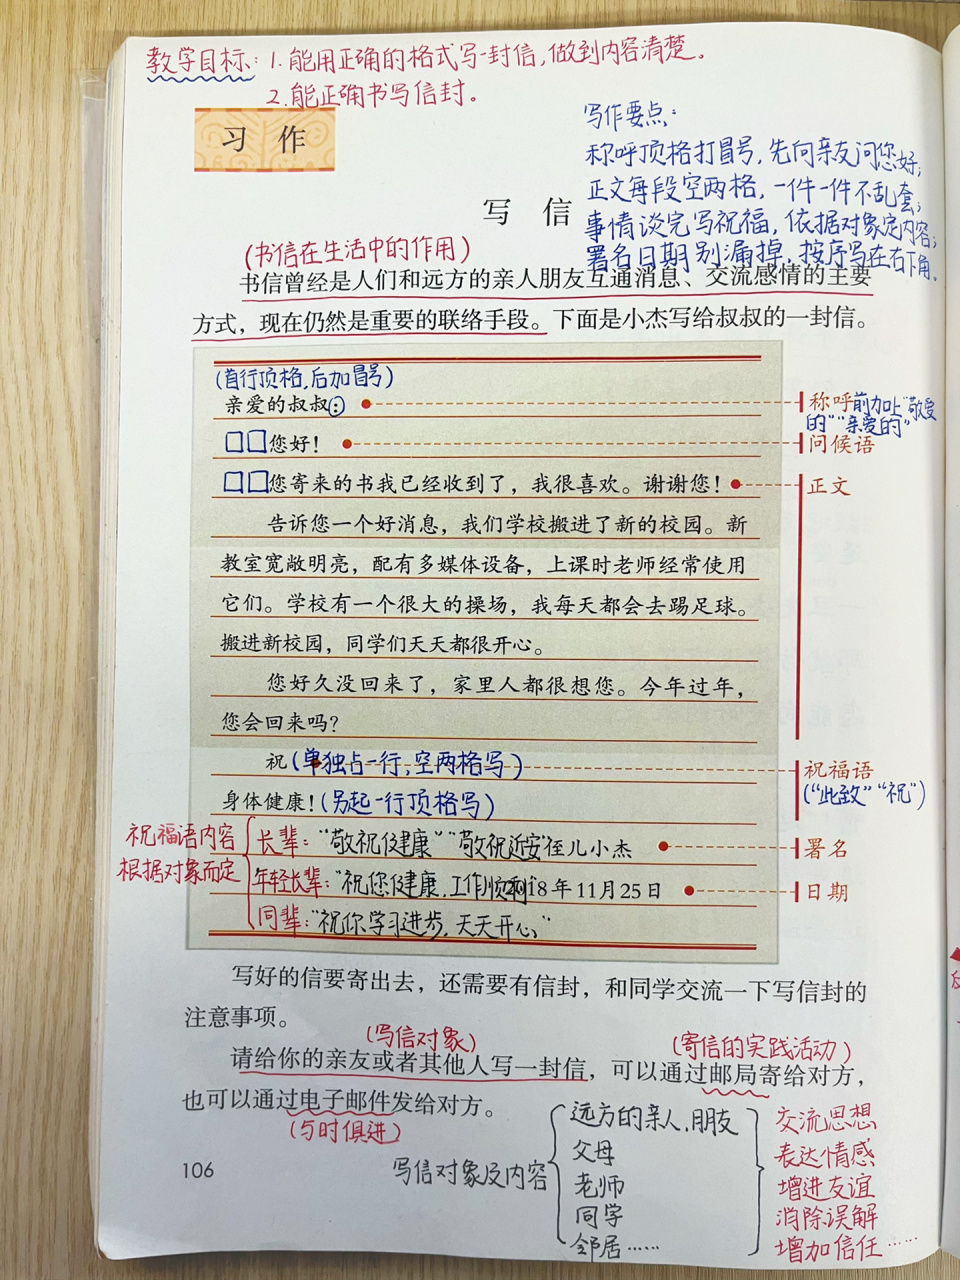 教学目标：1.能用正确的格式写一封信，做到内容清楚。
2.能正确书写信封。
习 作
写作要点：
称呼顶格打冒号，先向亲友问您好；
正文每段空两格，一件一件不乱套；
事情谈完写祝福，依据对象定内容；
署名日期别漏掉，按序写在右下角。
写 信
(书信在生活中的作用)
书信曾经是人们和远方的亲人朋友互通消息、交流感情的主要
方式，现在仍然是重要的联络手段。下面是小杰写给叔叔的一封信。
(首行顶格，后加冒号)
亲爱的叔叔：
称呼前加上“敬爱
的”“亲爱的”
您好！
问候语
您寄来的书我已经收到了，我很喜欢。谢谢您！
正文
告诉您一个好消息，我们学校搬进了新的校园。新
教室宽敞明亮，配有多媒体设备，上课时老师经常使用
它们。学校有一个很大的操场，我每天都会去踢足球。
搬进新校园，同学们天天都很开心。
您好久没回来了，家里人都很想您。今年过年，
您会回来吗？
祝(单独占一行，空两格写)
祝福语
(“此致”“祝”)
身体健康！(另起一行顶格写)
祝福语内容
根据对象而定
长辈：“敬祝健康”“敬祝近安”
侄儿小杰
署名
年轻长辈：“祝您健康，工作顺利”
2018年11月25日
日期
同辈：“祝你学习进步，天天开心”
写好的信要寄出去，还需要有信封，和同学交流一下写信封的
注意事项。
(写信对象)
(寄信的实践活动)
请给你的亲友或者其他人写一封信，可以通过邮局寄给对方，
也可以通过电子邮件发给对方。
(与时俱进)
写信对象及内容
远方的亲人，朋友
父母
老师
同学
邻居……
交流思想
表达情感
增进友谊
消除误解
增加信任……
106